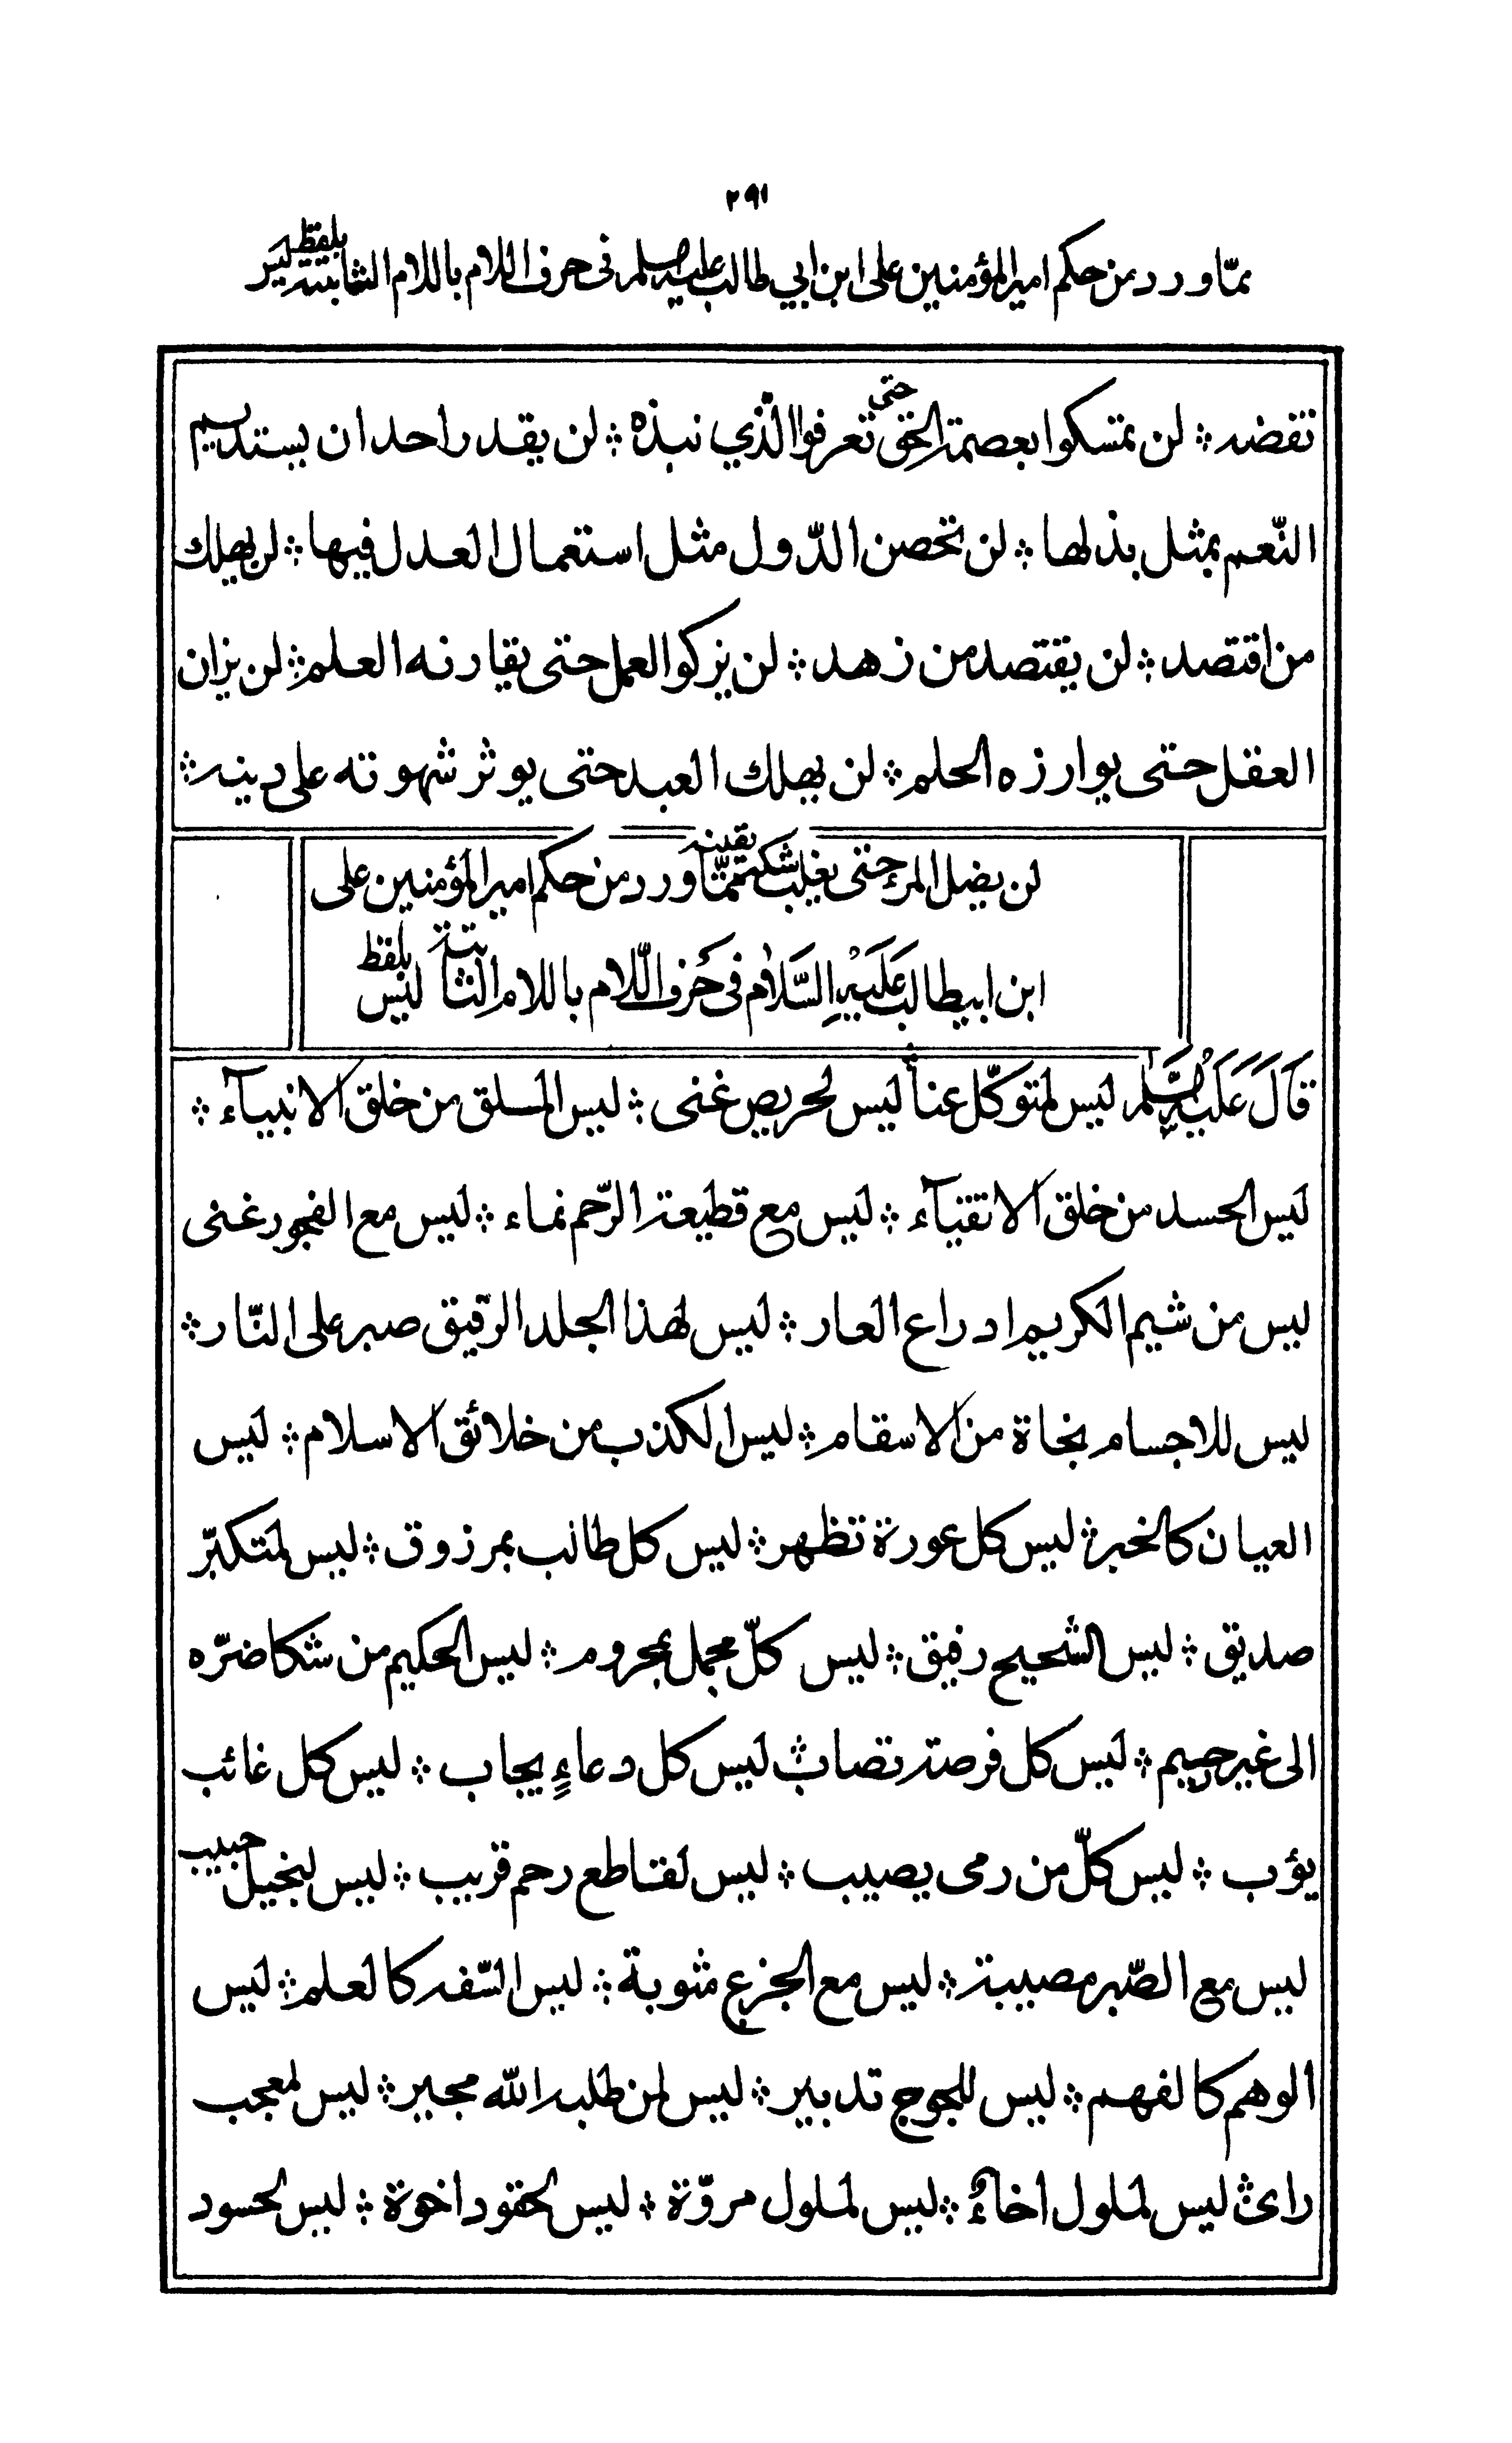 ٢٩١
ممّا ورد من حكم امير المؤمنين على ابن ابي طالب عليه السلم فى حرف اللام باللام الثابتة بلفظ ليس
تنقضه ؞ لن تمسكوا بعصمة الحق حتى تعرفوا الّذي نبذه ؞ لن يقدر احد ان يستديم
النّعم بمثل بذلها ؞ لن تحصن الدّول مثل استعمال العدل فيها ؞ لن يهلك
من اقتصد ؞ لن يقتصد من زهد ؞ لن يزكوا العمل حتى يقارنه العلم ؞ لن يزان
العقل حتى يوارزه الحلم ؞ لن يهلك العبد حتى يوثر شهوته على دينه ؞
لن يضل المرء حتى يغلب شكه يقينه ممّا ورد من حكم امير المؤمنين على
ابن ابيطالب عَلَيْهِ السَّلَام فى حَرف اللّام باللام الثابتة بلفظ ليس
قَالَ عَلَيْهِ السَّلم ليس لمتوكّل عنأ ليس لحريص غنى ؞ ليس الملق من خلق الانبيآء ؞
ليس الحسد من خلق الاتقيآء ؞ ليس مع قطيعة الرّحم نماء ؞ ليس مع الفجور غنى
ليس من شيم الكريم ادراع العار ؞ ليس لهذا الجلد الرّقيق صبر على النّار ؞
ليس للاجسام نجاة من الاسقام ؞ ليس الكذب من خلائق الاسلام ؞ ليس
العيان كالخبر ؞ ليس كل عورة تظهر ؞ ليس كل طالب بمرزوق ؞ ليس لمتكبّر
صديق ؞ ليس لشحيح رفيق ؞ ليس كلّ مجمل بمحروم ؞ ليس الحكيم من شكا ضرّه
الى غير رحيم ؞ ليس كل فرصة تصاب ؞ ليس كل دعاءٍ يجاب ؞ ليس كل غائب
يؤب ؞ ليس كلّ من رمى يصيب ؞ ليس لقاطع رحم قريب ؞ ليس لبخيل حبيب
ليس مع الصّبر مصيبة ؞ ليس مع الجزع مثوبة ؞ ليس السّفه كالعلم ؞ ليس
الوهم كالفهم ؞ ليس للجوج تدبير ؞ ليس لمن طلبه الله مجير ؞ ليس لمعجب
راى ؞ ليس لملول اخاءٌ ؞ ليس لملول مروّة ؞ ليس لحقود اخوة ؞ ليس لحسود